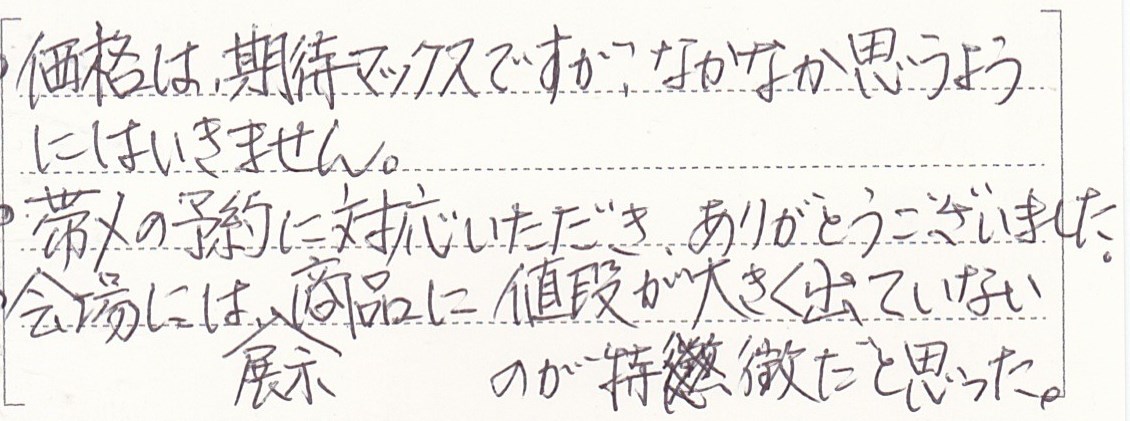 価格は、期待マックスですが、なかなか思うよう
にはいきません。
帯〆の予約に対応いただき、ありがとうございました。
会場には、展示商品に値段が大きく出ていない
のが特徴だと思った。